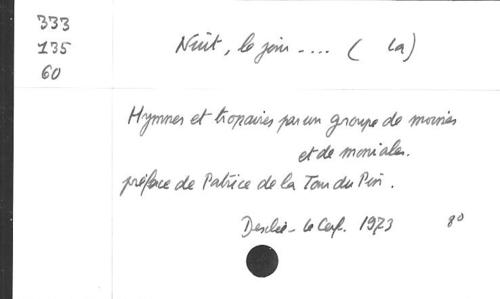 333
135
60
Nuit, le jour .... ( La)
Hymnes et tropaires par un groupe de moines
et de moniales.
préface de Patrice de la Tour du Pin.
Desclée - le Cerf. 1973 8°